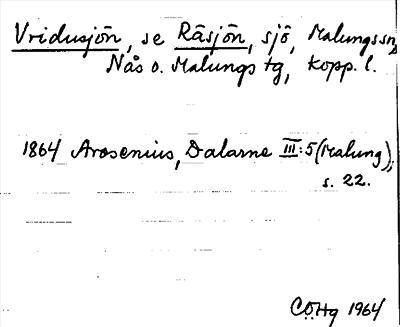 Vridusjön, se Råsjön, sjö, Malungs sn,
Nås o. Malungs tg, Kopp. l.
1864 Arosenius, Dalarne III:5 (Malung),
s. 22.
CÖHg 1964